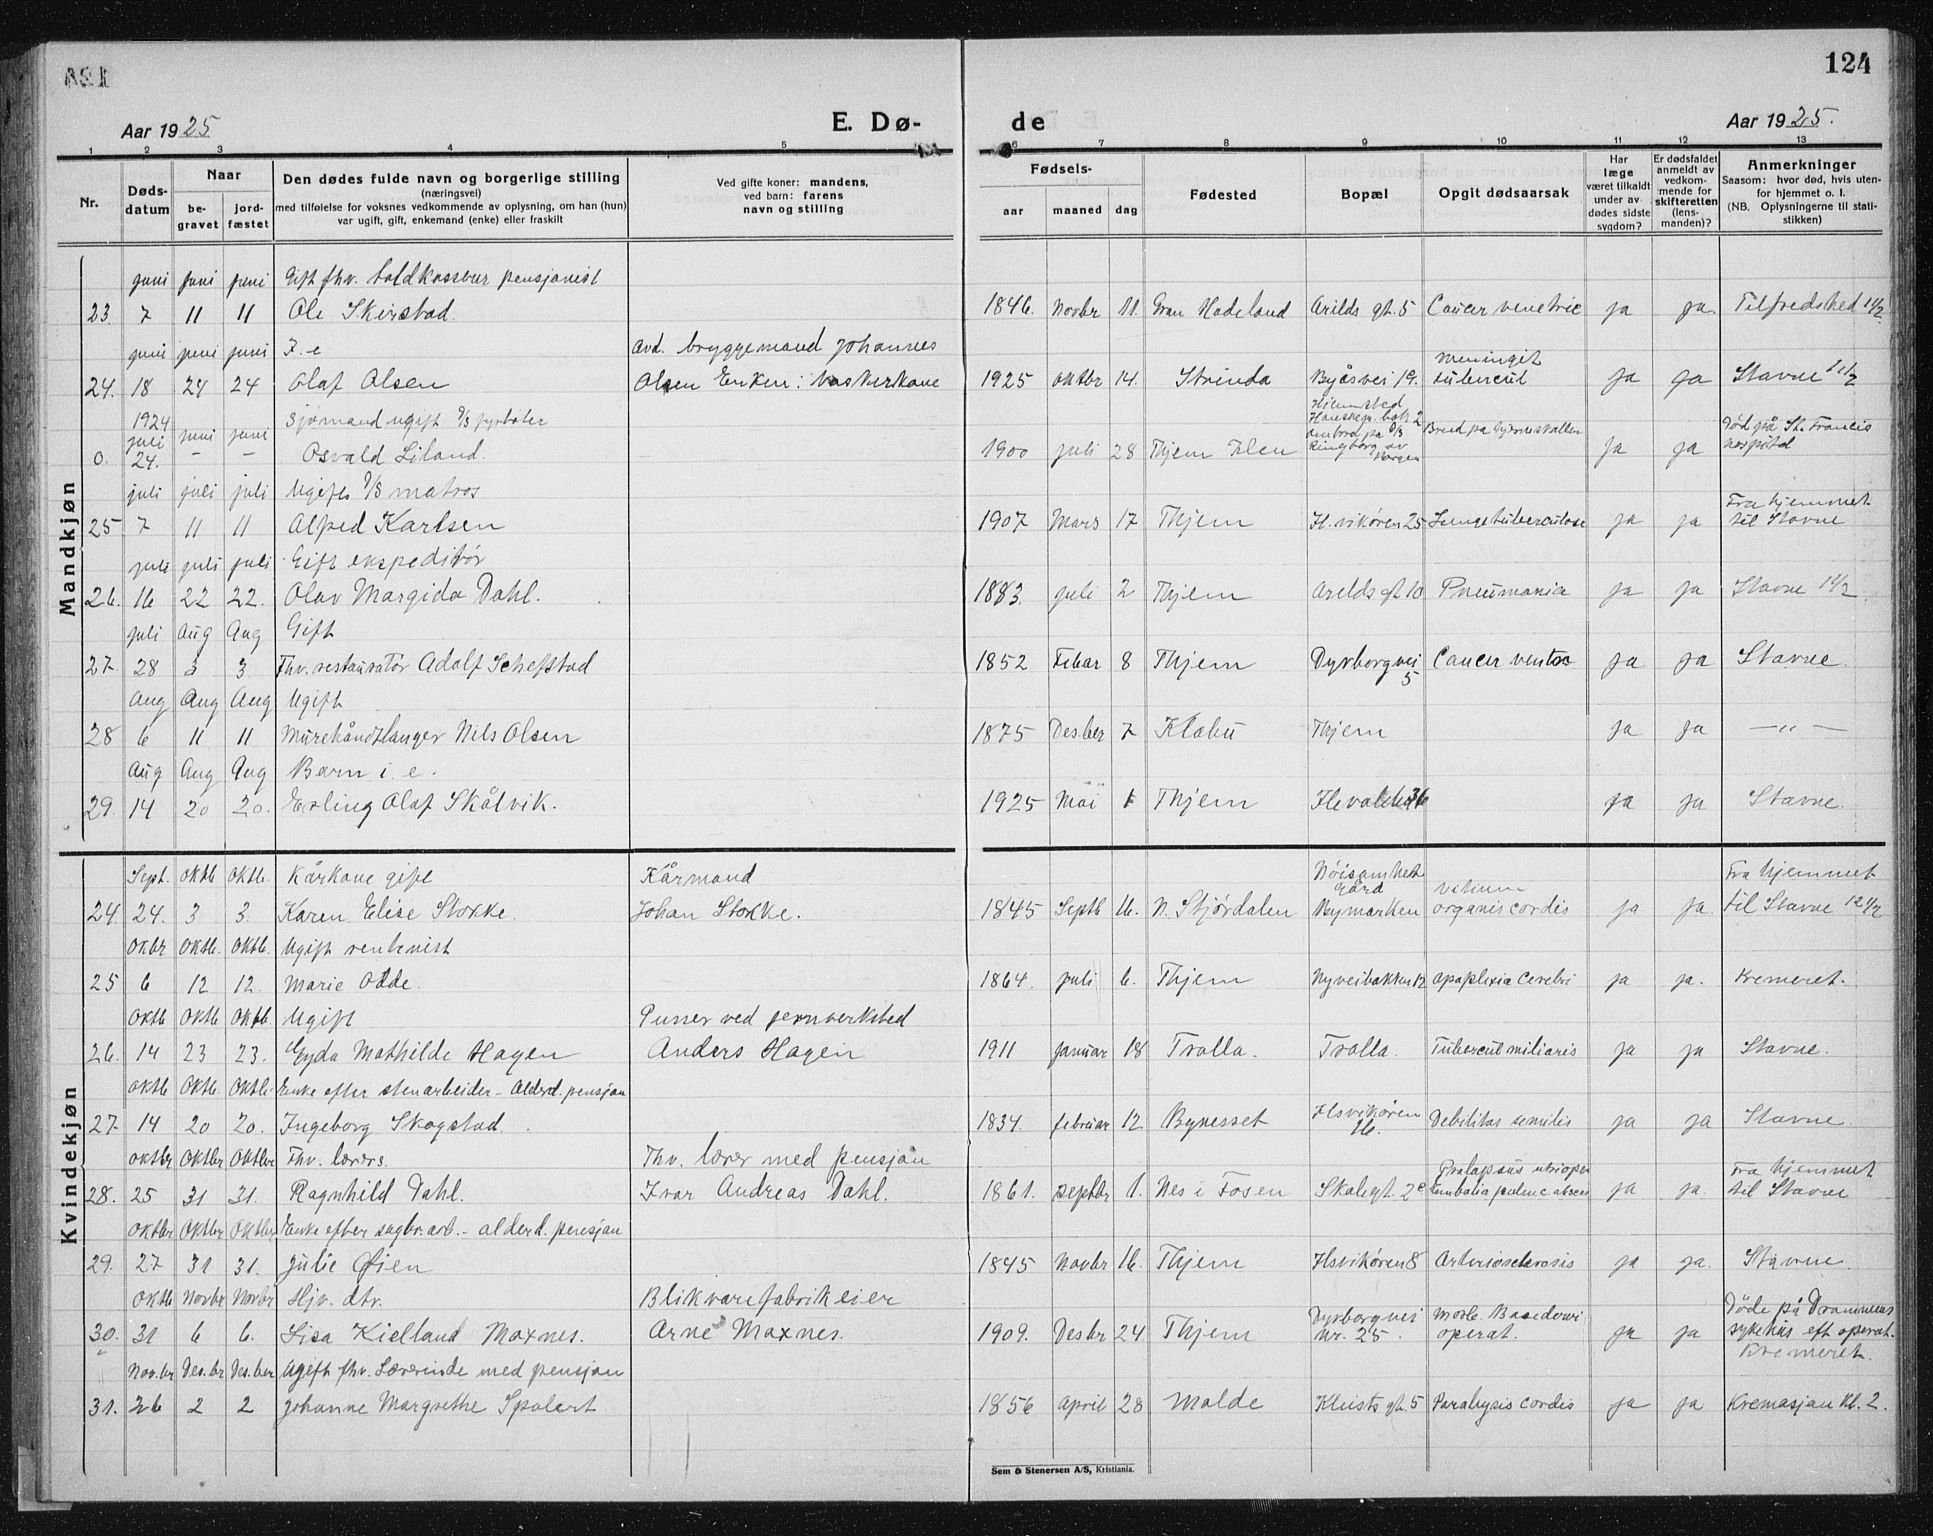 124
Aar 1925
E. Dø-
de
Aar 1925.
1 2 3 4 5 6 7 8 9 10 11 12 13
Nr.
Døds-
datum
Naar
be-
gravet
jord-
fæstet
Den dødes fulde navn og borgerlige stilling
(næringsvei)
med tilføielse for voksnes vedkommende av oplysning, om han (hun)
var ugift, gift, enkemand (enke) eller fraskilt
Ved gifte koner: mandens,
ved barn: farens
navn og stilling
Fødsels-
aar maaned dag
Fødested
Bopæl
Opgit dødsaarsak
Har
læge
været tilkaldt
under av-
dødes sidste
sygdom?
Er dødsfaldet
anmeldt av
vedkom-
mende for
skifteretten
(lens-
manden)?
Anmerkninger
Saasom: hvor død, hvis uten-
for hjemmet o. l.
(NB. Oplysningerne til stati-
stikken)
Mandkjøn
juni juni juni Gift fhv. toldkasserer pensjonist
23. 7 11 11 Ole Skirstad. 1846. Novbr 11. Gran Hadeland Arilds gt. 5 Cancer ventric ja ja. Tilfredshed 12 1/2
juni juni juni I. e Avd. bryggemand Johannes meningit
24. 18 24 24 Olaf Olsen Olsen Enken: vaskerkone 1925 oktbr 14. Strinda Byåsvei 19. tubercul ja ja Stavne
1924 juli juni juni Sjømand ugift D/S fyrbøter
0. 24. – – Osvald Liland. 1900 juli 28 Thjem Ilen ombord på D/S Ringborg av Bergen Brud på hjerneskallen ja ja Død på St. Francis hospital
juli juli juli Ugift D/S matros Fra hjemmet
25. 7 11 11 Alfred Karlsen 1907 Mars 17 Thjem Il.vikøren 25 Lungetuberculose ja ja til Stavne
juli juli juli Gift ekspeditør
26. 16 22 22. Olav Margido Dahl. 1883. juli 2 Thjem Arilds gt 10 Pneumonia ja ja Stavne 1 1/2
juli Aug Aug Gift
27. 28 3 3. Fhv. restauratør Adolf Schefstad 1852 Febar 8 Thjem Dyrborgvei 5 Cancer ventr ja ja Stavne.
Aug Aug Aug Ugift
28 6 11 11 Murehåndtlanger Nils Olsen 1875 Desber 7 Klæbu Thjem ja ja — „ —
Aug Aug Aug Barn i. e.
29. 14 20 20. Erling Olaf Skålvik. 1925 Mai 1 Thjem Ilevolden 36 ja ja Stavne.
Kvindekjøn
Sept. Oktb Oktb. Kårkone gift Kårmand Nøisomhet gård vitium Fra hjemmet
24. 24. 3 3. Karen Elise Stokke. Johan Stokke. 1845 Septb 16. N. Stjørdalen Bymarken organis cordis ja ja. til Stavne 12 1/2
Oktbr Oktb. Oktb. Ugift rentenist
25 6 12 12. Marie Odde. 1864. juli 6. Thjem Nyveibakken 12 Apoplexia Cerebri ja ja. Kremeret.
Oktb Oktb Oktb. Ugift Pusser ved jernverksted
26. 14 23 23. Gyda Mathilde Hagen Anders Hagen 1911 januar 18 Trolla. Trolla. Tubercul miliaris ja ja Stavne.
oktb Oktb. Oktb. Enke efter stenarbeider – Alderd. pensjon
27. 14 20 20. Ingeborg Skogstad. 1834. februar 12. Bynesset Ilsvikøren 16. Debilitas senilis ja ja Stavne.
oktbr Oktbr Oktbr Fhv. lærers. Fhv. lærer med pensjon Prolapsus uteri oper Fra hjemmet
28. 25 31 31. Ragnhild Dahl. Ivar Andreas Dahl. 1861. septbr 1. Nes i Fosen Embolia pulm ja ja. til Stavne
oktbr Oktbr Oktbr Enke efter sagbr.arb. – alderd. pensjon
29. 27 31 31. Julie Øien 1845 Novbr 16. Thjem Ilsvikøren 8 Arteriosclerosis ja ja. Stavne.
Oktb Novbr Novbr Hjv. dtr. Blikvarefabrikeier Dyrborgvei Morb. Basedowi Døde på Drammens
30. 31 6 6. Lisa Kielland Moxnes. Arne Moxnes. 1909. Desbr 24 Thjem nr. 25. operat. ja ja sykehus eft operat. Kremeret.
Nov.br Des.br Des.ber Ugift fhv. Lærerinde med pensjon
31. 26 2 2 Johanne Margrethe 1856 April 28 Molde gt. 5 Paralysis cordis ja ja Kremasjon kl. 2.
Sem & Stenersen A/S, Kristiania.